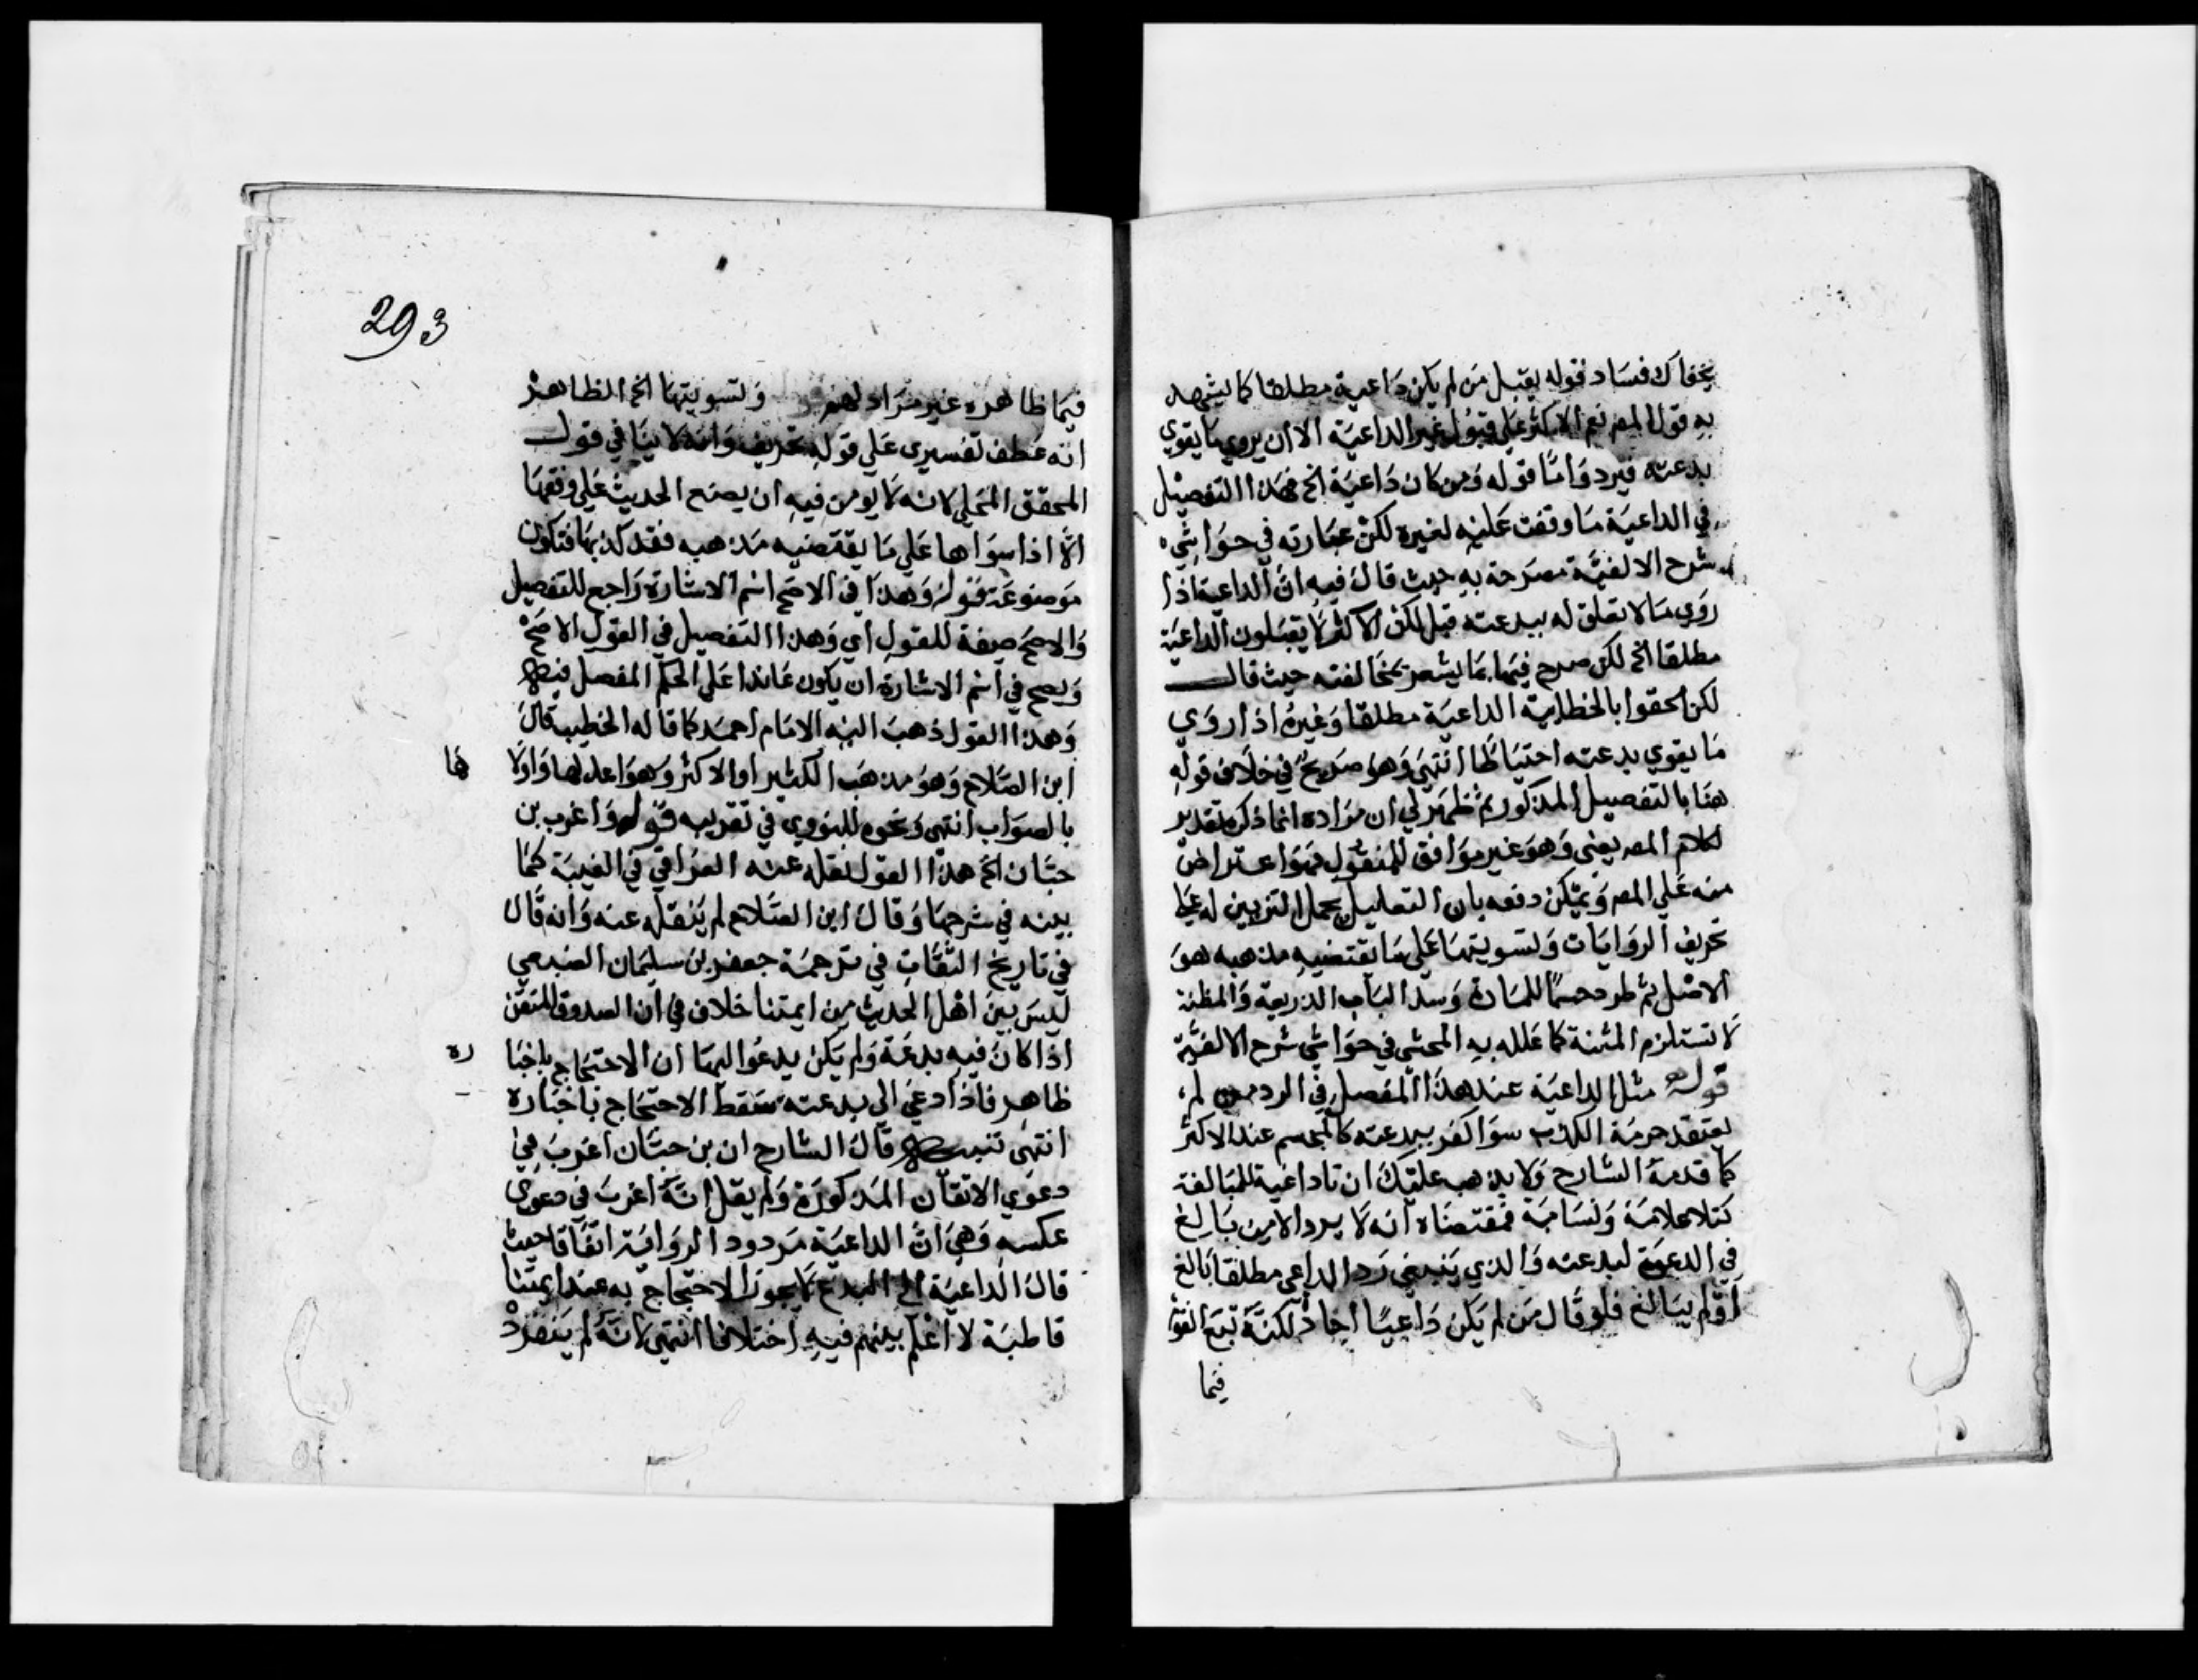 يخفاك فساد قوله يقبل من لم يكن داعية مطلقا كما يشهد
به قول المص نعم الاكثر على قبول غير الداعية الا ان يروي ما يقوي
بدعته فيرد واما قوله ومن كان داعية الخ فهذا التفصيل
في الداعية ما وقفت عليه لغيره لكن عبارته في حواشي
شرح الالفية مصرحة به حيث قال فيه ان الداعية اذا
روي ما لا تعلق له ببدعته قبل لكن الاكثر لا يقبلون الداعية
مطلقا الخ لكن صرح فيها بما يشعر بمخالفته حيث قال
لكن الحقوا بالخطابية الداعية مطلقا وغيره اذا روي
ما يقوي بدعته احتياطا انتهى وهو صريح في خلاف قوله
هنا بالتفصيل المذكور ثم ظهر لي ان مراده انما ذكره تقدير
لكلام المص يعني وهو غير موافق للمنقول فهو اعتراض
منه على المص ويمكن دفعه بان التعليل بحمل التزيين له على
تحريف الروايات وتسويتها على ما تقتضيه مذهبه هو
الاصل ثم طرد حسما للمادة وسدا لباب الذريعة والمظنة
لا تستلزم المئنة كما علله به المحشي في حواشي شرح الالفية
قوله مثل الداعية عند هذا المفصل في الرد من لم
يعتقد حرمة الكذب سوا كفر ببدعته كالمجسم عند الاكثر
كما قدمه الشارح ولا يذهب عليك ان تا داعية للمبالغة
كتا علامة ونسابة فمقتضاه انه لا يرد الا من بالغ
في الدعوة لبدعته والذي ينبغي رد الداعي مطلقا بالغ
او لم يبالغ فلو قال من لم يكن داعيا اجاد لكنه تبع القوم
فيما
293
فيما ظاهره غير مراد لهم ولتسويتها الخ الظاهر
انه عطف تفسيري على قوله تحريف وانه لا ينافي قول
المحقق المحلي لانه لا يومن فيه ان يضع الحديث على وفقها
لا اذا سواها على ما يقتضيه مذهبه فقد كذب بها فتكون
موضوعة قوله وهذا في الاصح اسم الاشارة راجع للتفصيل
والاصح صفة للقول اي وهذا التفصيل في القول الاصح
ويصح في اسم الاشارة ان يكون عائدا على الحكم المفصل فيه
وهذا القول ذهب اليه الامام احمد كما قاله الخطيب قال
ابن الصلاح وهو مذهب الكثير او الاكثر وهو اعدلها واولا
ها
بالصواب انتهى ونحوه للنووي في تقريبه قوله واغرب بن
حبان الخ هذا القول نقله عنه العراقي في الفيته كما
بينه في شرحها وقال ابن الصلاح لم ينقله عنه وانه قال
في تاريخ الثقات في ترجمة جعفر بن سليمان الضبعي
ليس بين اهل الحديث من ايمتنا خلاف في ان الصدوق المتقن
اذا كان فيه بدعة ولم يكن يدعوا اليها ان الاحتجاج باخبا
ره
ظاهر فاذا دعي الى بدعته سقط الاحتجاج باخباره
انتهى تنبيه قال الشارح ان بن حبان اغرب في
دعوي الاتقان المذكورة ولم يقل انه اغرب في دعوي
عكسه وهي ان الداعية مردود الرواية اتفاقا حيث
قال الداعية الى البدع لا يجوز الاحتجاج به عند ايمتنا
قاطبة لا اعلم بينهم فيه اختلافا انتهى لانه لم ينفرد